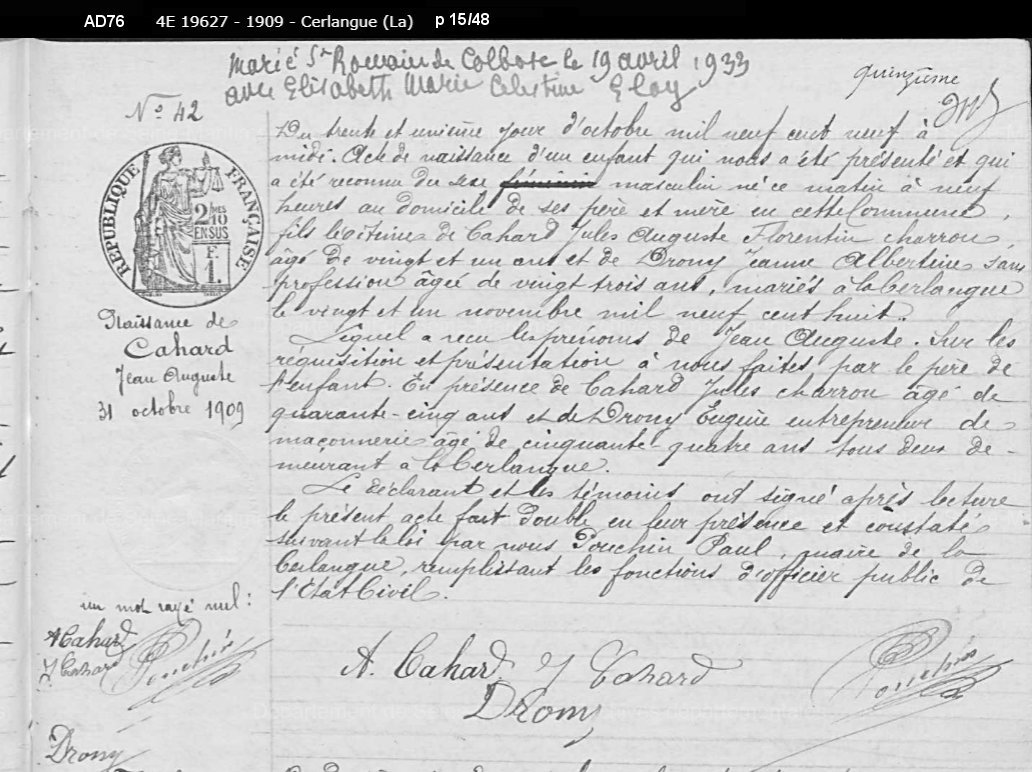 AD76 4E 19627 - 1909 - Cerlangue (La) p 15/48
Marié St Romain de Colbosc le 19 avril 1933
avec Elisabeth Marie Celestine Eloy
quinzième
N° 42
RÉPUBLIQUE FRANÇAISE
2/10 EN SUS
F. 1.
Naissance de
Cahard
Jean Auguste
31 octobre 1909
Du trente et unième jour d'octobre mil neuf cent neuf à
midi. Acte de naissance d'un enfant qui nous a été présenté et qui
a été reconnu du sexe féminin masculin né ce matin à neuf
heures au domicile de ses père et mère en cette Commune,
fils légitime de Cahard Jules Auguste Florentin charron,
âgé de vingt et un ans et de Drony Jeanne Albertine sans
profession âgée de vingt trois ans, mariés à la Cerlangue
le vingt et un novembre mil neuf cent huit.
Lequel a reçu les prénoms de Jean Auguste. Sur les
réquisition et présentation à nous faites par le père de
l'enfant. En présence de Cahard Jules charron âgé de
quarante-cinq ans et de Drony Eugène entrepreneur de
maçonnerie âgé de cinquante-quatre ans tous deux de-
meurant à la Cerlangue.
Le déclarant et les témoins ont signé après lecture
le présent acte fait double en leur présence et constaté
suivant la loi par nous Pouchin Paul, maire de la
Cerlangue, remplissant les fonctions d'officier public de
l'Etat Civil.
un mot rayé nul :
A Cahard
J Cahard Pouchin
A. Cahard J Cahard Pouchin
Drony
Drony